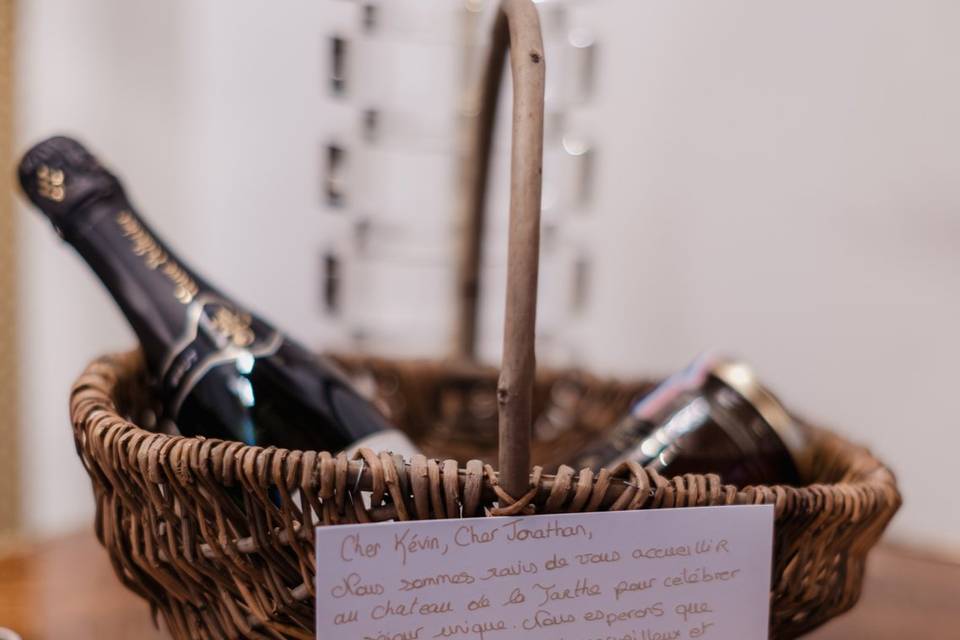 Cher Kévin, Cher Jonathan,
Nous sommes ravis de vous accueillir
au chateau de la Tarthe pour celébrer
séjour unique. Nous esperons que
et